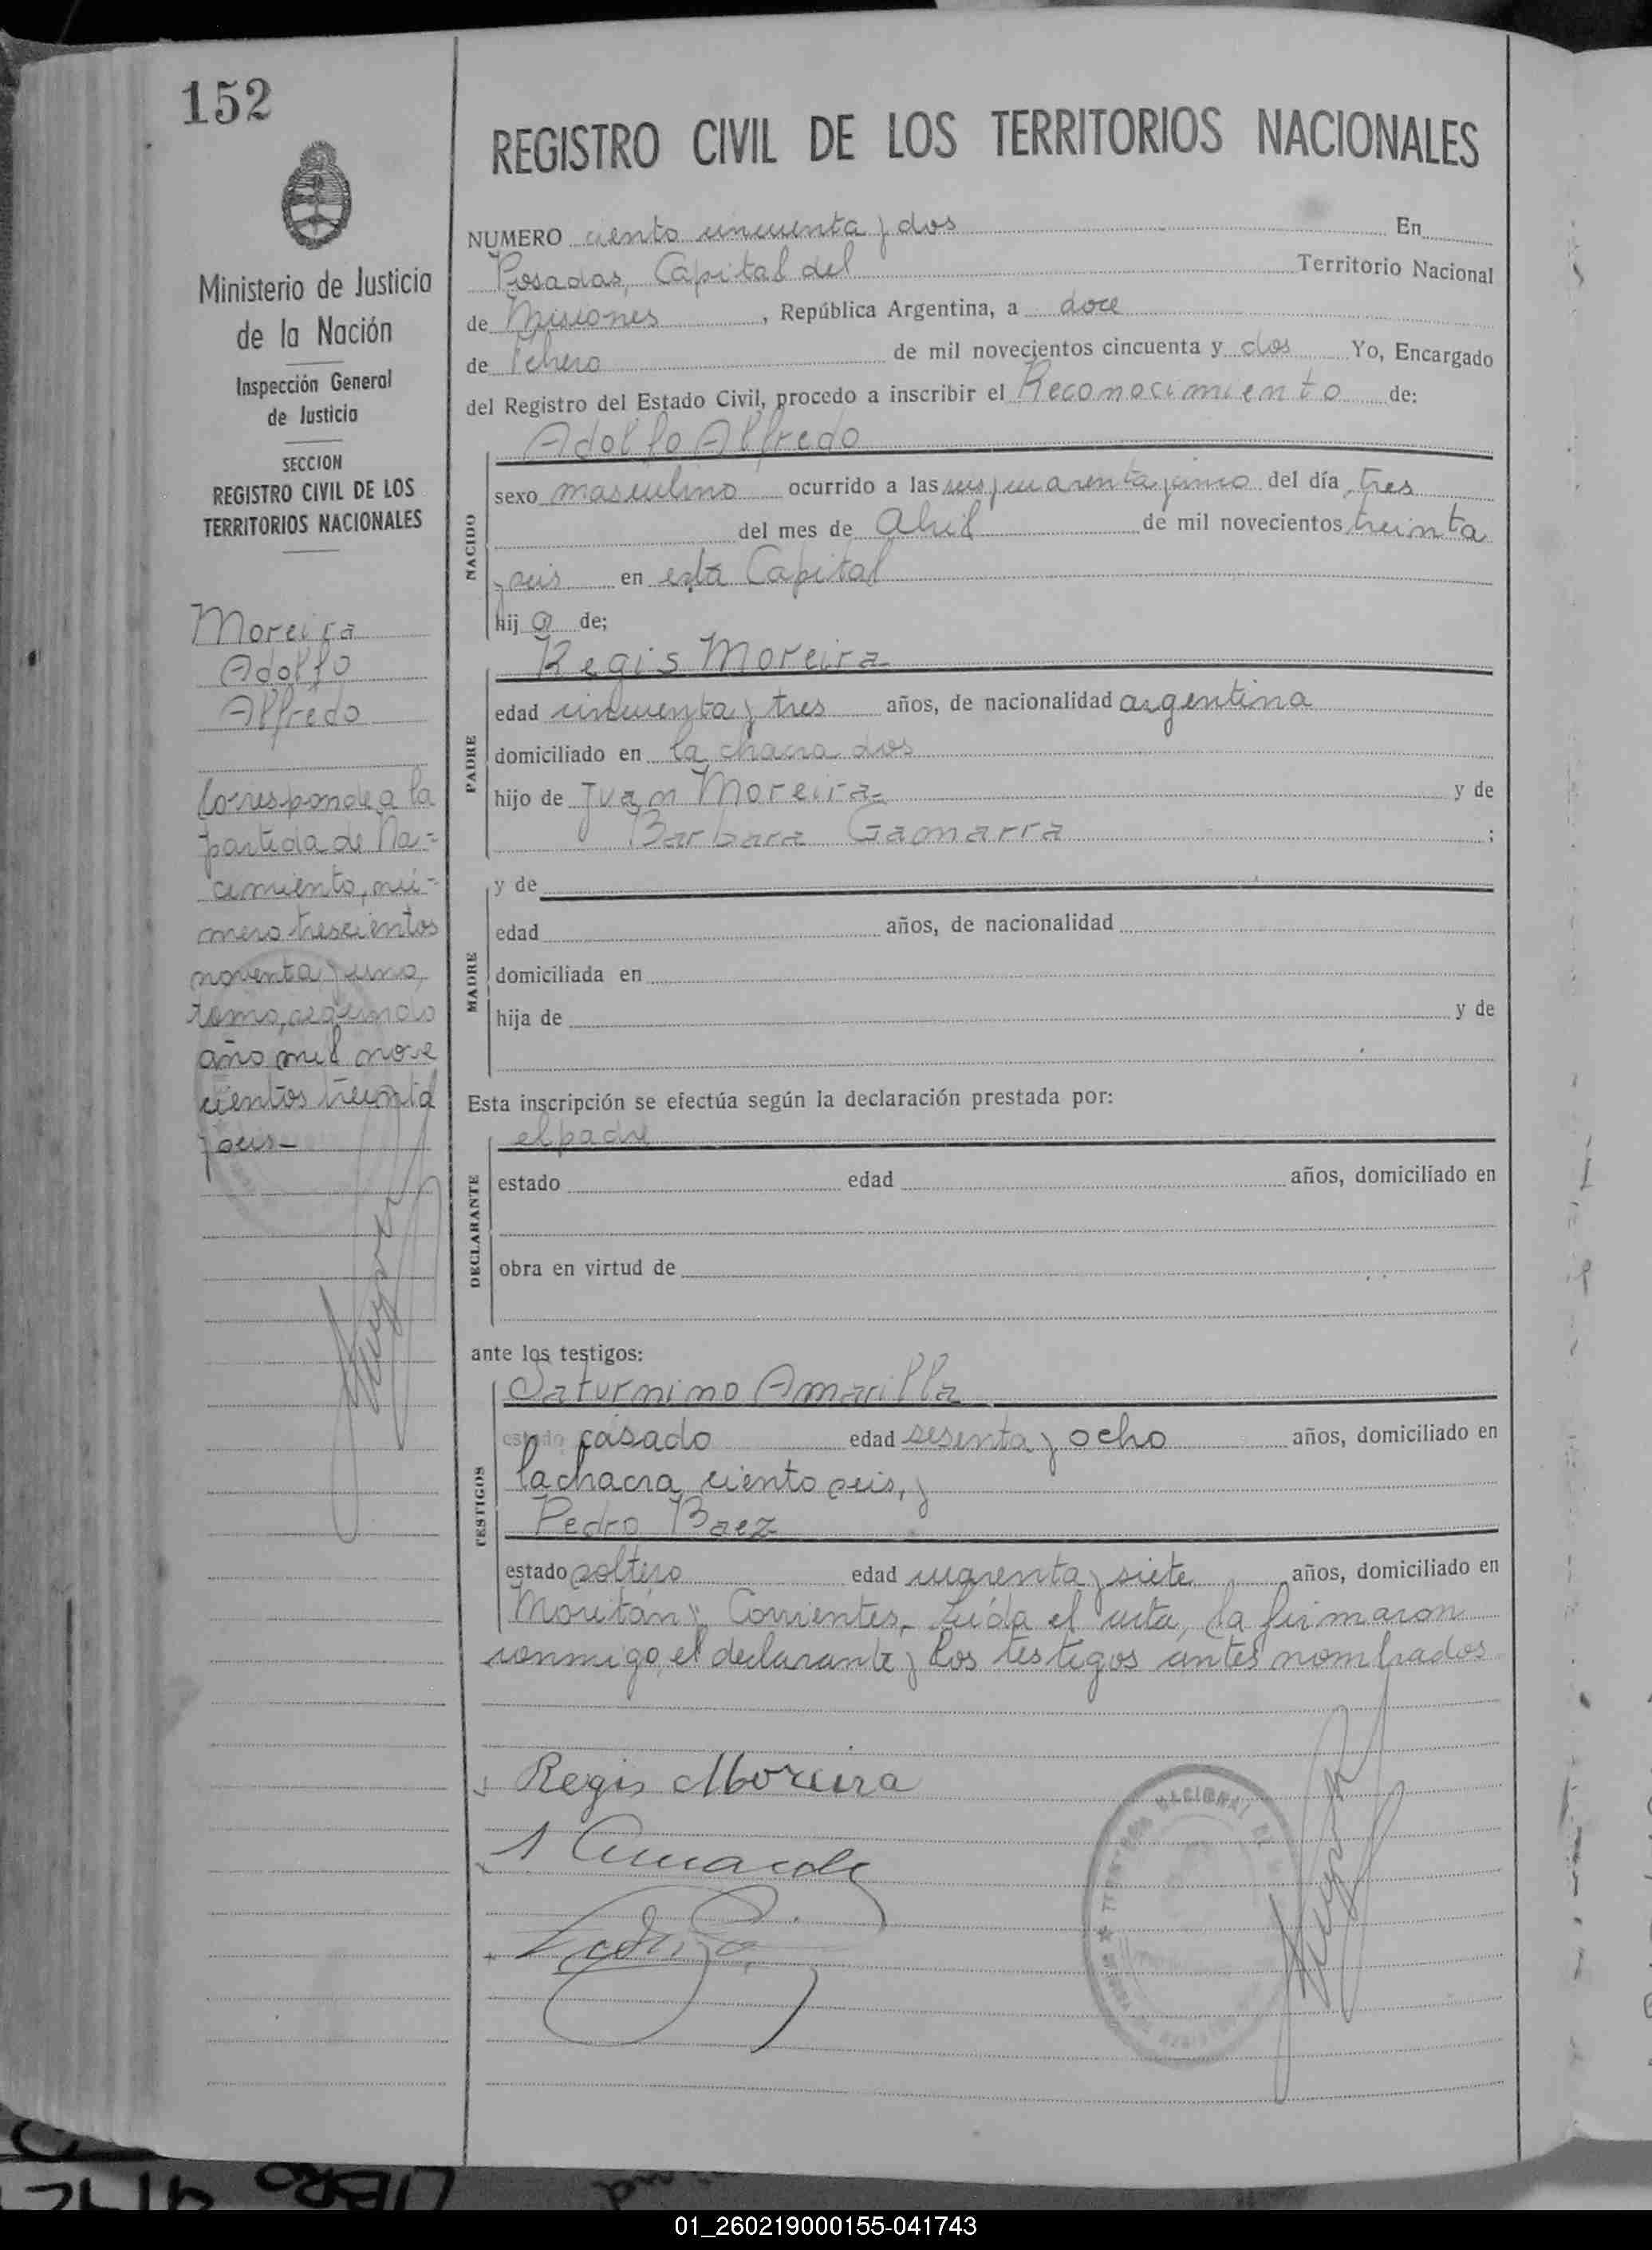 152
Ministerio de Justicia
de la Nación
Inspección General
de Justicia
SECCION
REGISTRO CIVIL DE LOS
TERRITORIOS NACIONALES
Moreira
Adolfo
Alfredo
Corresponde a la
partida de Na-
cimiento, nú-
mero trescientos
noventa y uno,
tomo, segundo
año mil nove
cientos treinta
y seis-
REGISTRO CIVIL DE LOS TERRITORIOS NACIONALES
NUMERO ciento cincuenta y dos En
Posadas, Capital del Territorio Nacional
de Misiones, República Argentina, a doce
de de mil novecientos cincuenta y dos Yo, Encargado
del Registro del Estado Civil, procedo a inscribir el Reconocimiento de:
Adolfo Alfredo
NACIDO
sexo masculino ocurrido a las seis y cuarenta y cinco del día tres
del mes de Abril de mil novecientos treinta
y seis en esta Capital
hij o de;
Regis Moreira
PADRE
edad cincuenta y tres años, de nacionalidad argentina
domiciliado en la chacra dos
hijo de Juan Moreira y de
Barbara Gamarra ;
y de
MADRE
edad años, de nacionalidad
domiciliada en
hija de y de
Esta inscripción se efectúa según la declaración prestada por:
el padre
DECLARANTE
estado edad años, domiciliado en
obra en virtud de
ante los testigos:
Saturnino Amarilla
TESTIGOS
estado casado edad sesenta y ocho años, domiciliado en
la chacra ciento seis, y
Pedro Baez
estado soltero edad cuarenta y siete años, domiciliado en
Moritán y Corrientes.- Leída el acta, la firmaron
conmigo, el declarante y los testigos antes nombrados
Regis Moreira
01_260219000155-041743
LIBRO